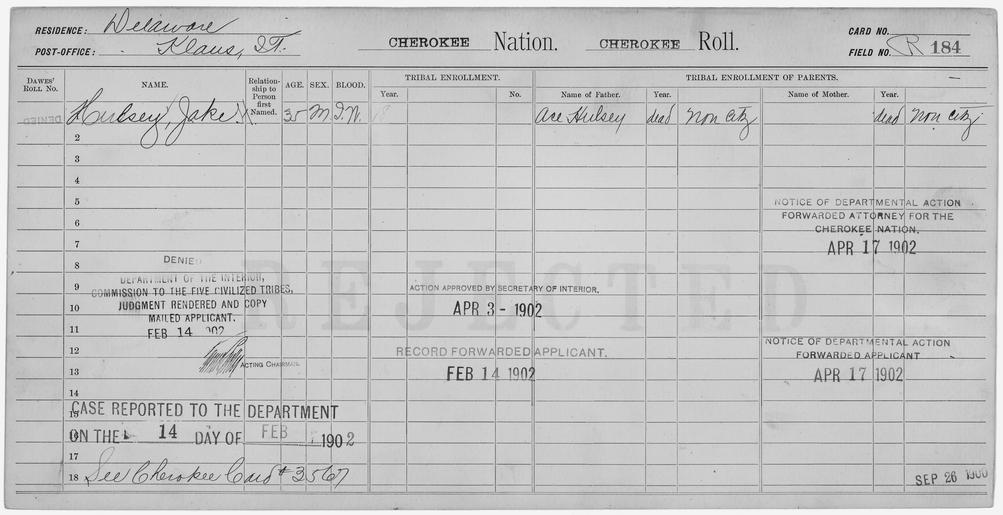 RESIDENCE: Delaware
POST-OFFICE: Klaus, I.T.
CHEROKEE Nation. CHEROKEE Roll.
CARD NO.
FIELD NO. R 184
DAWES' ROLL NO. NAME. Relationship to Person first Named. AGE. SEX. BLOOD. TRIBAL ENROLLMENT. TRIBAL ENROLLMENT OF PARENTS.
Year. No. Name of Father. Year. Name of Mother. Year.
DENIED Hulsey, Jake 35 M I.W. Ace Hulsey dead Non Citz dead Non Citz
2
3
4
5
6
7
8
9
10
11
12
13
14
15
16
17
18 See Cherokee Card # 3567
NOTICE OF DEPARTMENTAL ACTION
FORWARDED ATTORNEY FOR THE
CHEROKEE NATION.
APR 17 1902
DENIED
DEPARTMENT OF THE INTERIOR,
COMMISSION TO THE FIVE CIVILIZED TRIBES,
JUDGMENT RENDERED AND COPY
MAILED APPLICANT.
FEB 14 1902
ACTING CHAIRMAN.
REJECTED
ACTION APPROVED BY SECRETARY OF INTERIOR.
APR 3 - 1902
RECORD FORWARDED APPLICANT.
FEB 14 1902
NOTICE OF DEPARTMENTAL ACTION
FORWARDED APPLICANT
APR 17 1902
CASE REPORTED TO THE DEPARTMENT
ON THE 14 DAY OF FEB 1902
SEP 26 1900